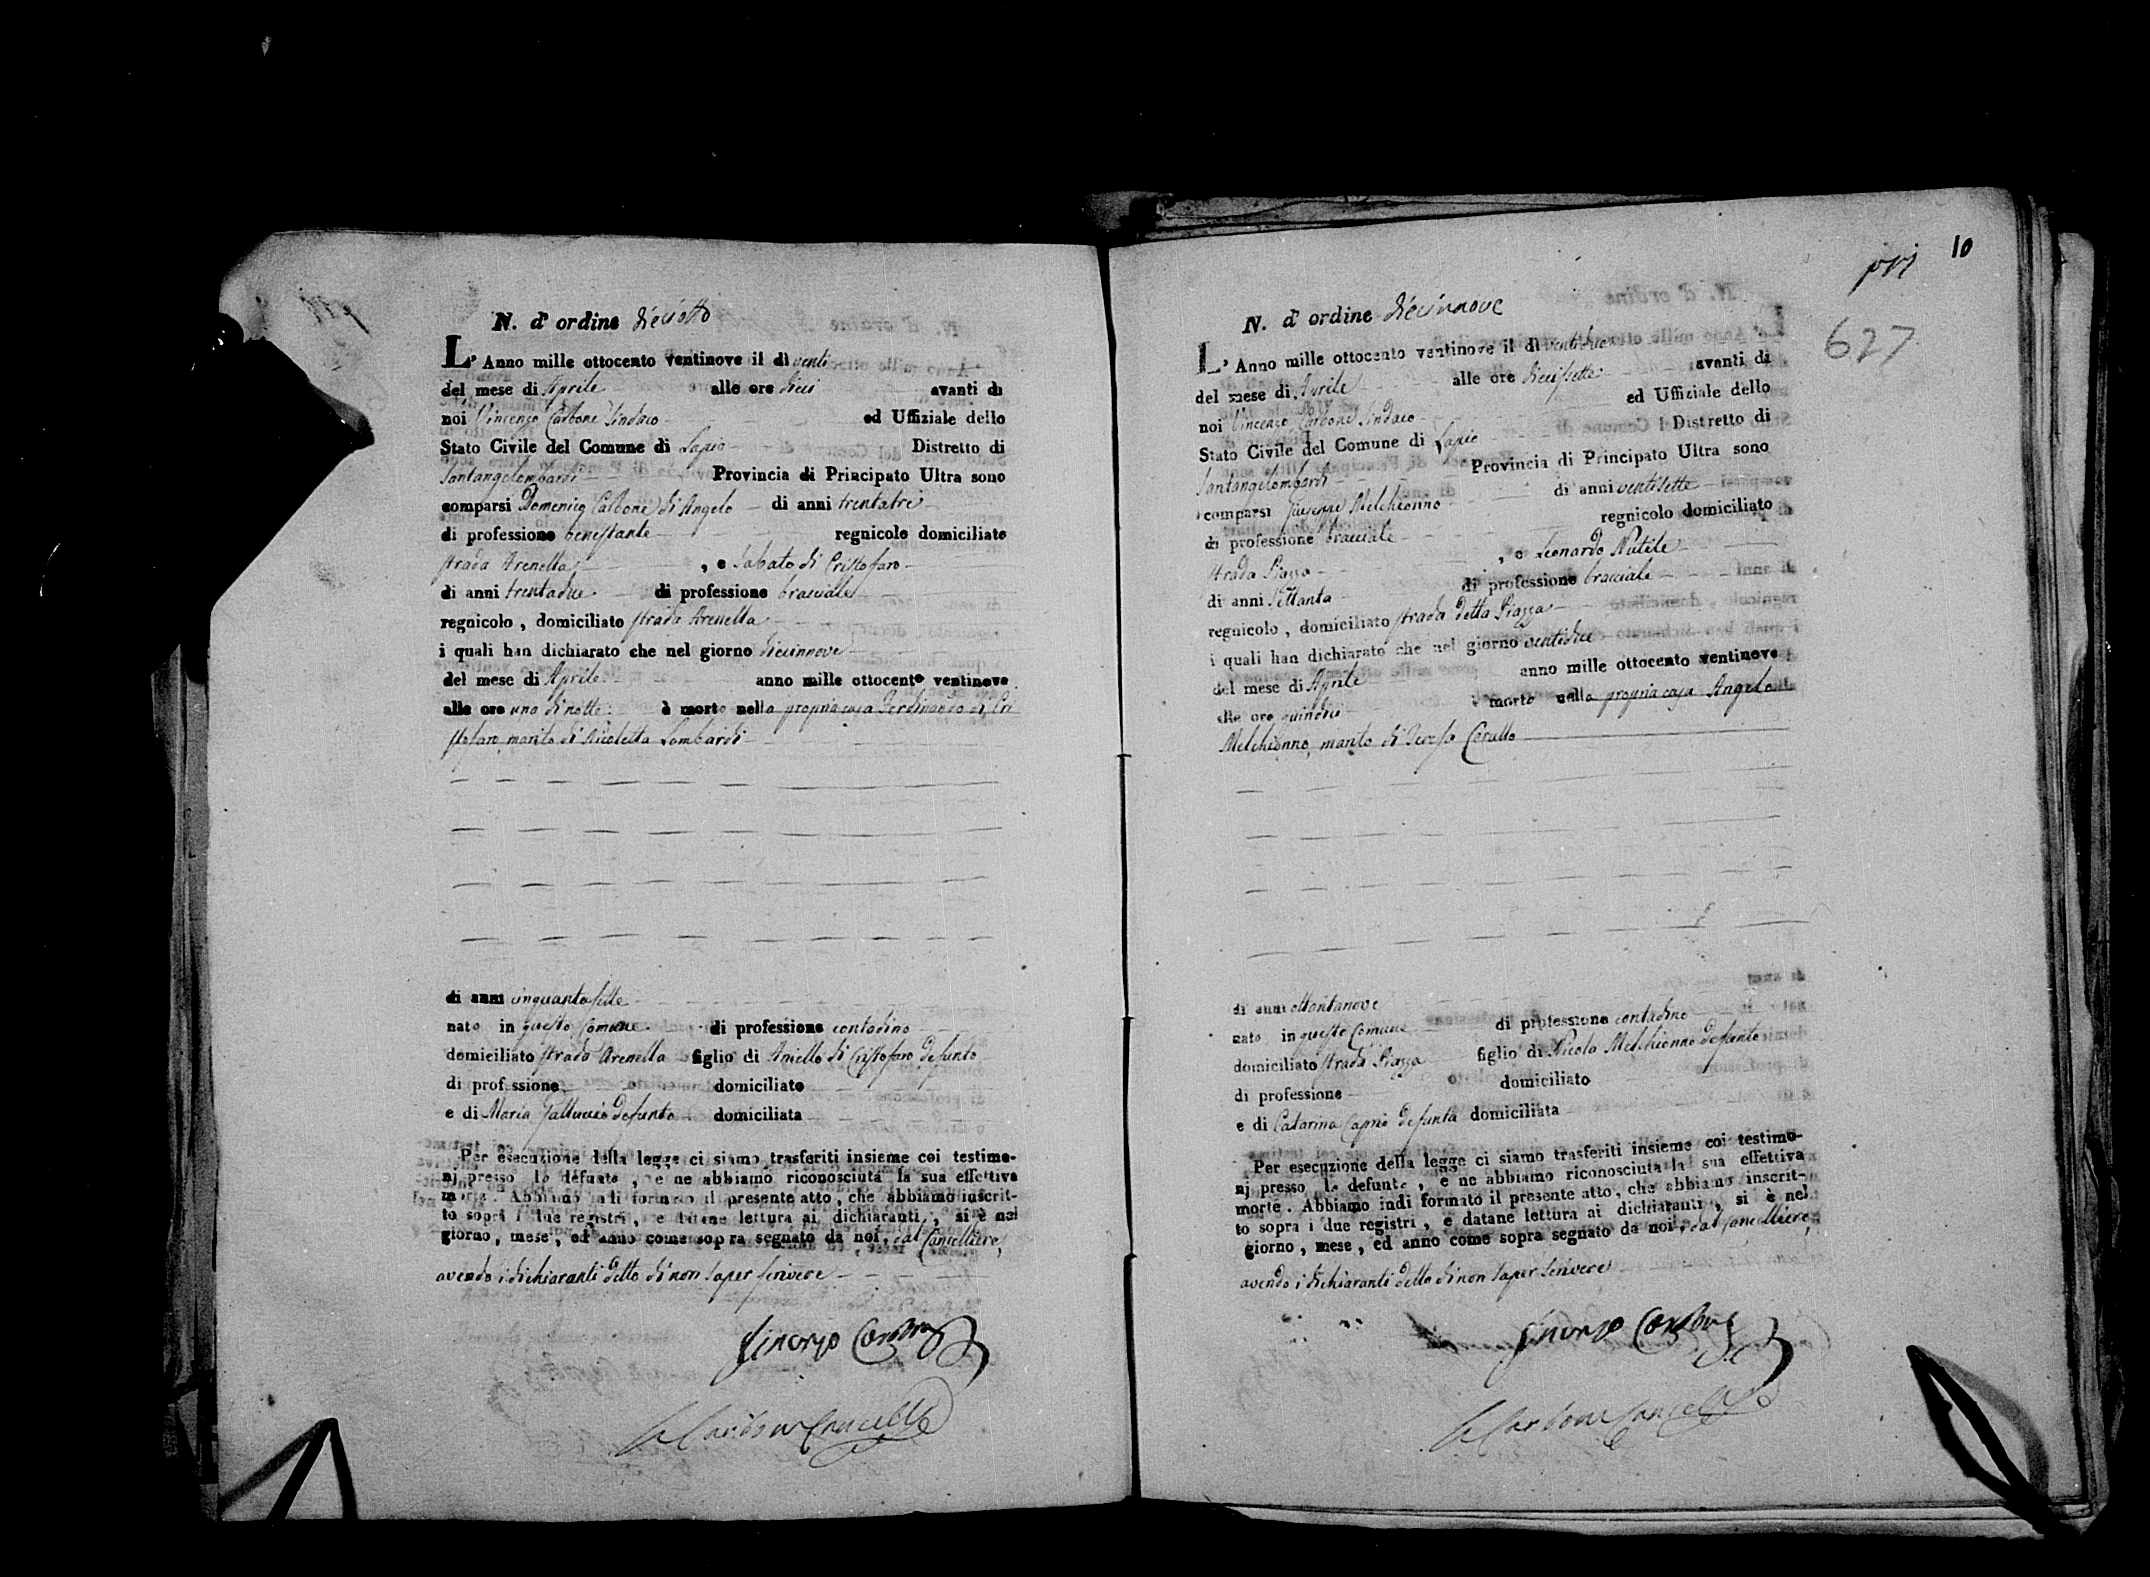 N. d' ordine dieciotto
L' Anno mille ottocento ventinove il di venti
del mese di Aprile alle ore dieci avanti di
noi Vincenzo Carbone Sindaco ed Uffiziale dello
Stato Civile del Comune di Lapio Distretto di
Santangelombardi Provincia di Principato Ultra sono
comparsi Domenico Carbone di Angelo di anni trentatre
di professione benestante regnicolo domiciliato
strada Arenella , e Sabato di Cristofaro
di anni trentadue di professione bracciale
regnicolo , domiciliato strada Arenella
i quali han dichiarato che nel giorno diecinnove
del mese di Aprile anno mille ottocento ventinove
alle ore una di notte è morto nella propria casa Ferdinando di Cri
stofaro marito di Nicoletta Lombardi
di anni cinquantasette
nato in questo Comune di professione contadino
domiciliato strada Arenella figlio di Aniello di Cristofaro defunto
di professione domiciliato
e di Maria Galluccio defunta domiciliata
Per esecuzione della legge ci siamo trasferiti insieme coi testimo-
nj presso lo defunto , e ne abbiamo riconosciuta la sua effettiva
morte . Abbiamo indi formato il presente atto , che abbiamo inscrit-
to sopra i due registri , e datane lettura ai dichiaranti , si è nel
giorno , mese , ed anno come sopra segnato da noi , e dal Cancelliere,
avendo i dichiaranti detto di non saper scrivere
Vincenzo Carbone
Carbone Cancelle
10
627
N. d' ordine diecinnove
L' Anno mille ottocento ventinove il di ventidue
del mese di Aprile alle ore diecissette avanti di
noi Vincenzo Carbone Sindaco ed Uffiziale dello
Stato Civile del Comune di Lapio Distretto di
Santangelombardi Provincia di Principato Ultra sono
comparsi Giuseppe Melchionno di anni ventisette
di professione bracciale regnicolo domiciliato
strada Piazza , e Leonardo Nutile
di anni settanta di professione bracciale
regnicolo , domiciliato strada detta Piazza
i quali han dichiarato che nel giorno ventidue
del mese di Aprile anno mille ottocento ventinove
alle ore quindici è morto nella propria casa Angelo
Melchionno marito di Teresa Cerullo
di anni ottantanove
nato in questo Comune di professione contadino
domiciliato strada Piazza figlio di Nicola Melchionno defunto
di professione domiciliato
e di Catarina Caprio defunta domiciliata
Per esecuzione della legge ci siamo trasferiti insieme coi testimo-
nj presso lo defunto , e ne abbiamo riconosciuta la sua effettiva
morte . Abbiamo indi formato il presente atto , che abbiamo inscrit-
to sopra i due registri , e datane lettura ai dichiaranti , si è nel
giorno , mese , ed anno come sopra segnato da noi , e dal Cancelliere,
avendo i dichiaranti detto di non saper scrivere
Vincenzo Carbone
Carbone Cancelle